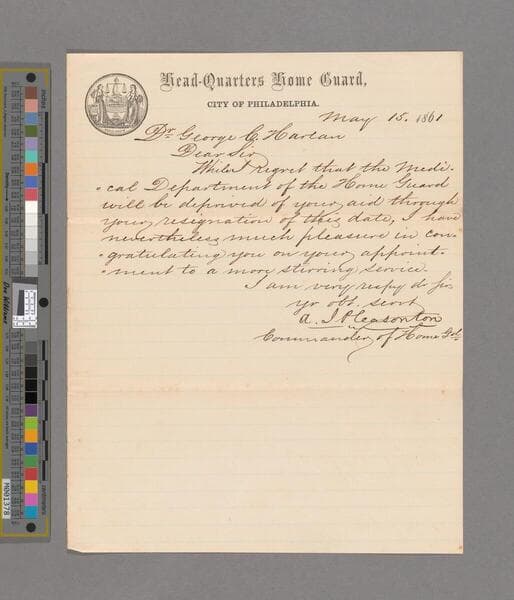 Head-Quarters Home Guard,
CITY OF PHILADELPHIA.
May 15. 1861
Dr. George C. Harlan
Dear Sir
While I regret that the Medi-
-cal Department of the Home Guard
will be deprived of your aid through
your resignation of this date, I have
nevertheless much pleasure in con-
-gratulating you on your appoint-
-ment to a more stirring service.
I am very respy dr sir
yr obt. servt
A. J. Pleasonton
Commander of Home Gd.
inches
centimeters
M001378